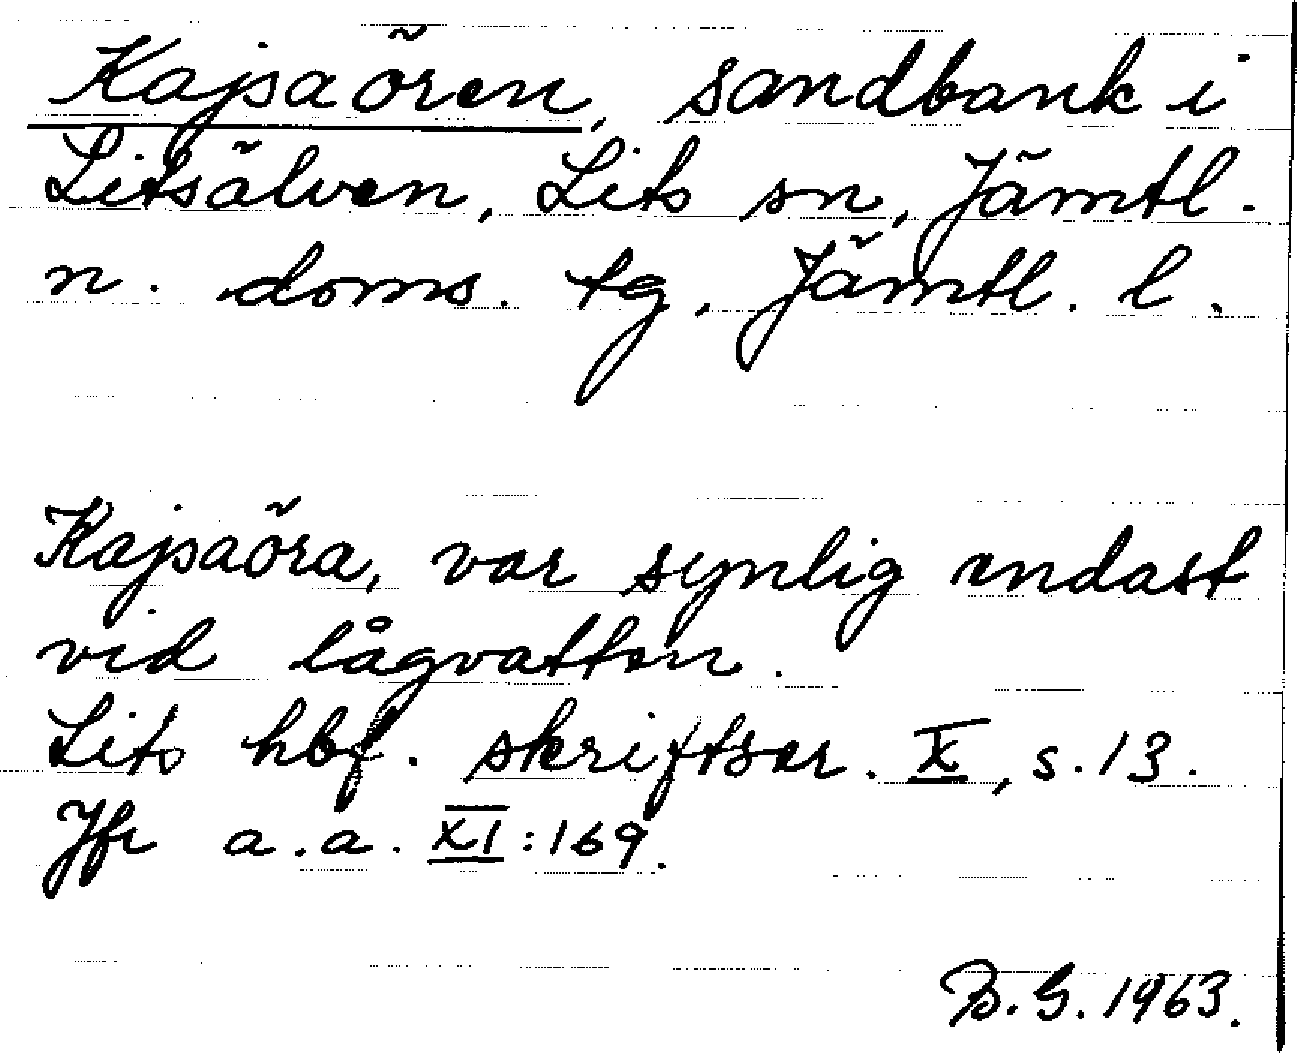 Kajsaören, sandbank i
Litsälven, Lits sn, Jämtl.
n. doms. tg. Jämtl. l.
Kajsaöra, var synlig endast
vid lågvatten.
Lits hbf. skriftser. X, s. 13.
Jfr a.a. XI:169.
B.G. 1963.